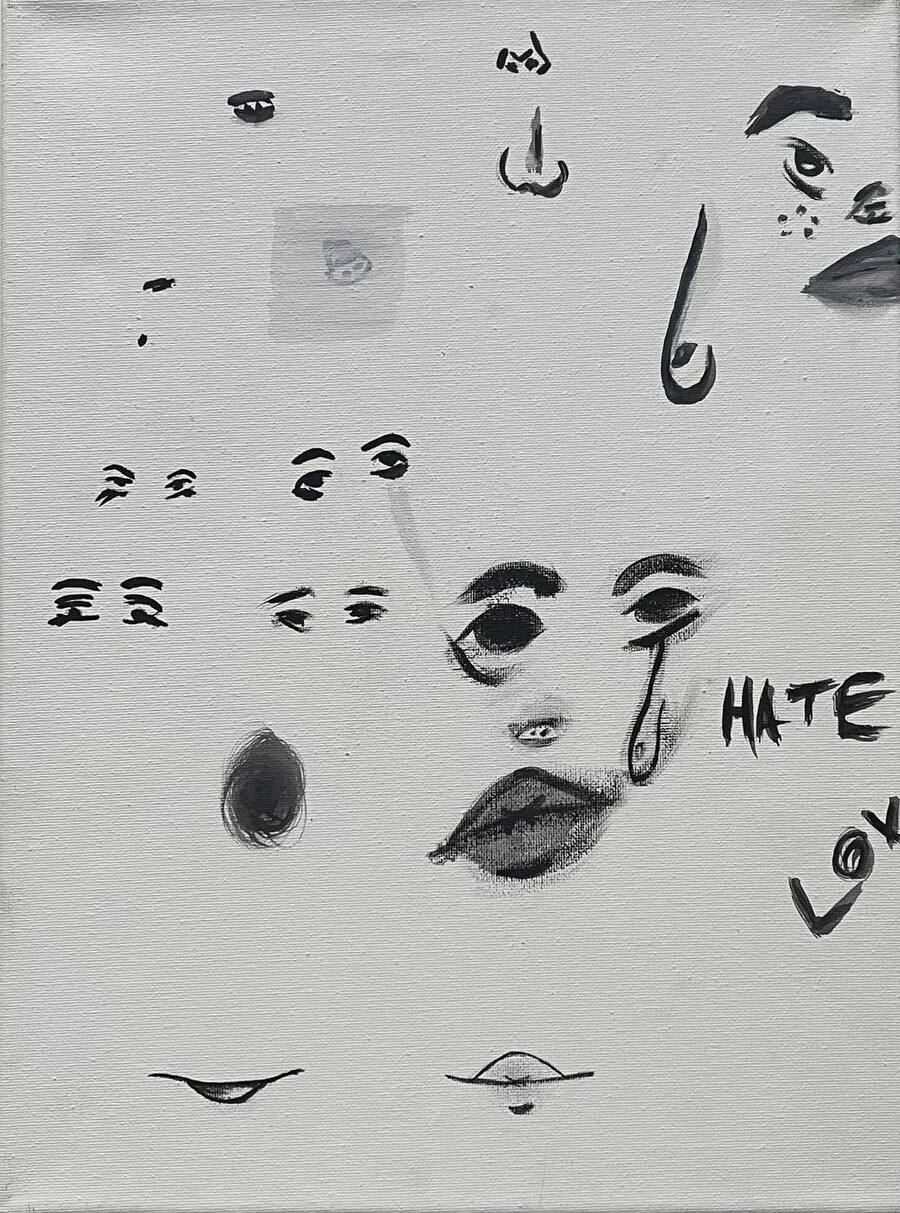 HATE
LOV